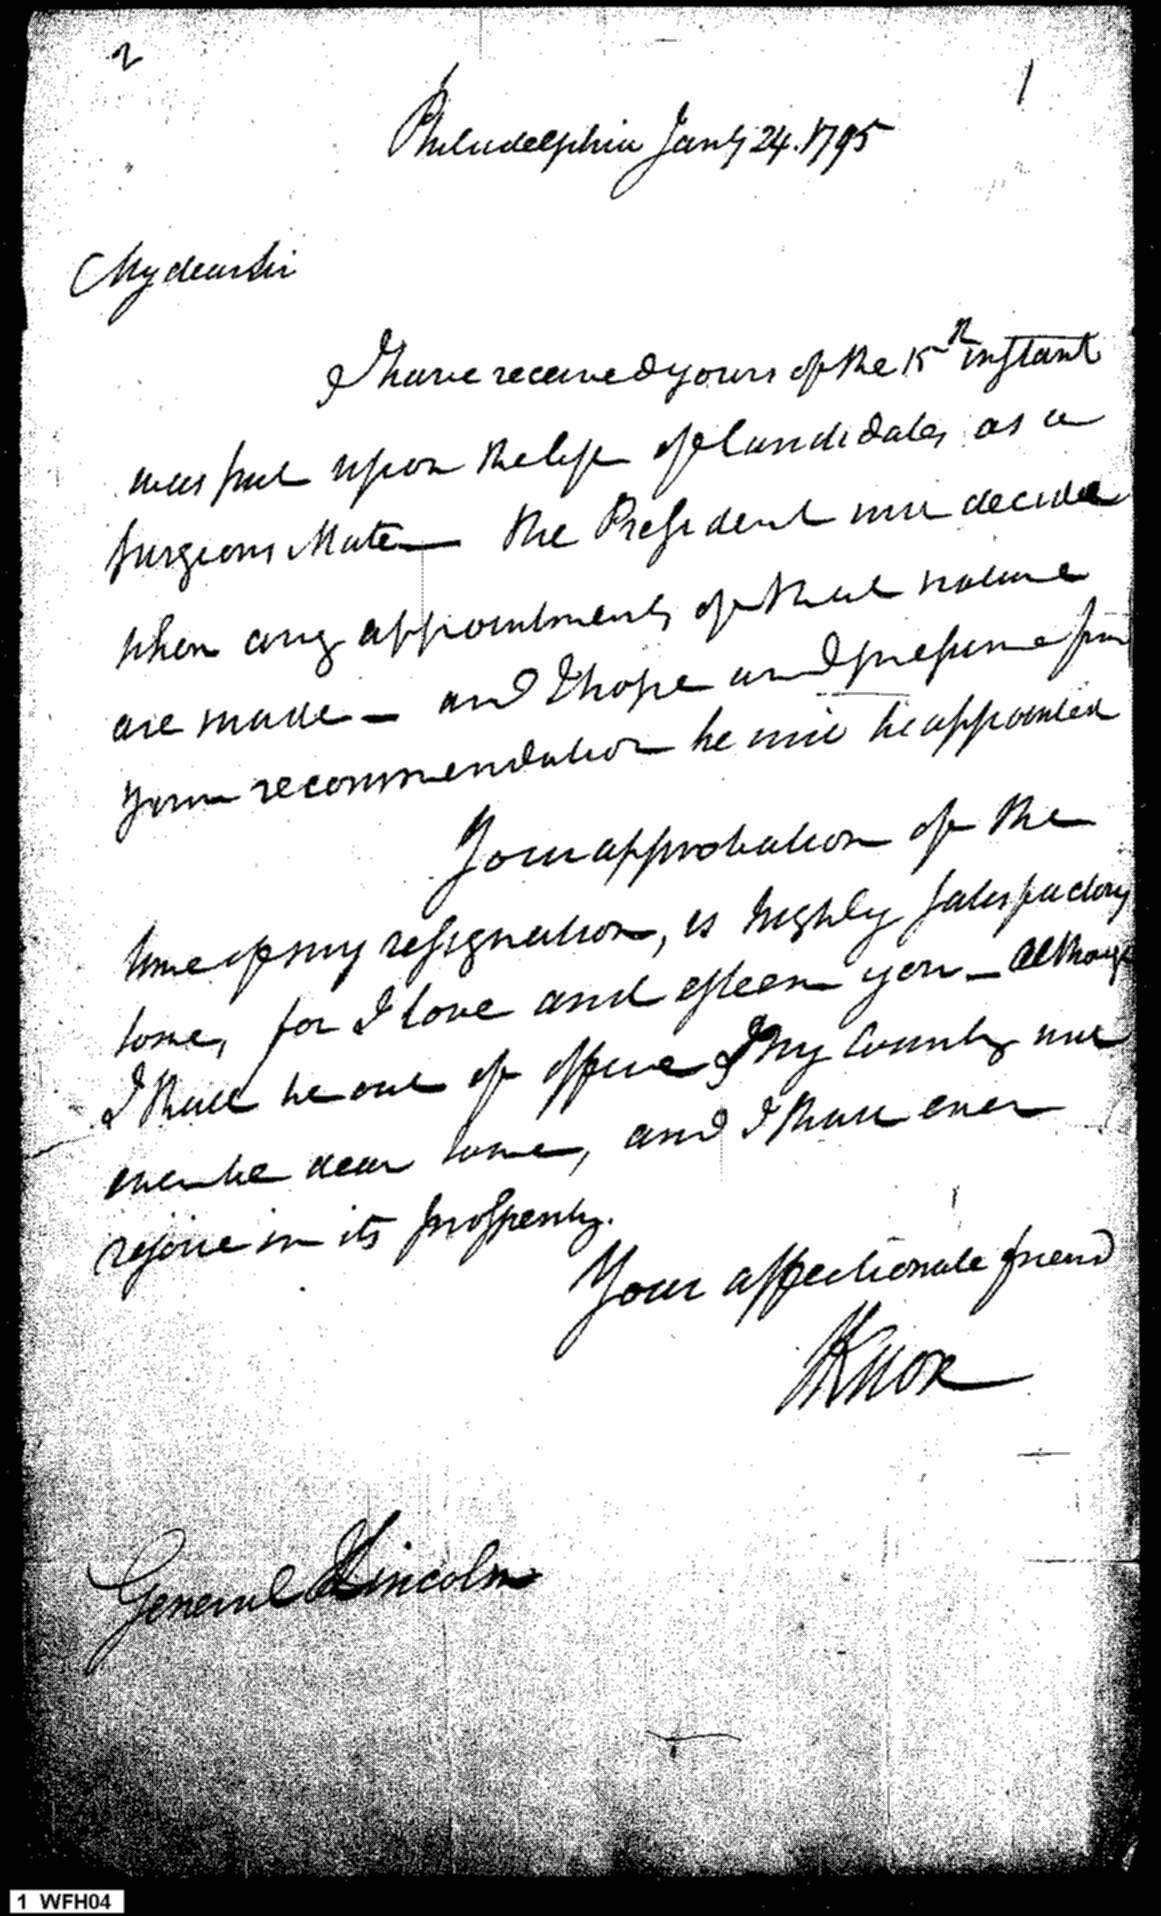 2
1
Philadelphia Jany 24. 1795
My dear Sir
I have received yours of the 15th instant
was put upon the list of Candidates as a
surgeons Mate — The President will decide
when any appointments of that nature
are made — and I hope and presume from
your recommendation he will be appointed
Your approbation of the
time of my resignation, is highly satisfactory
to me, for I love and esteem you — Although
I shall be out of office My Country will
ever be dear to me, and I shall ever
rejoice in its prosperity.
Your affectionate friend
HKnox
General Lincoln
1 WFH04